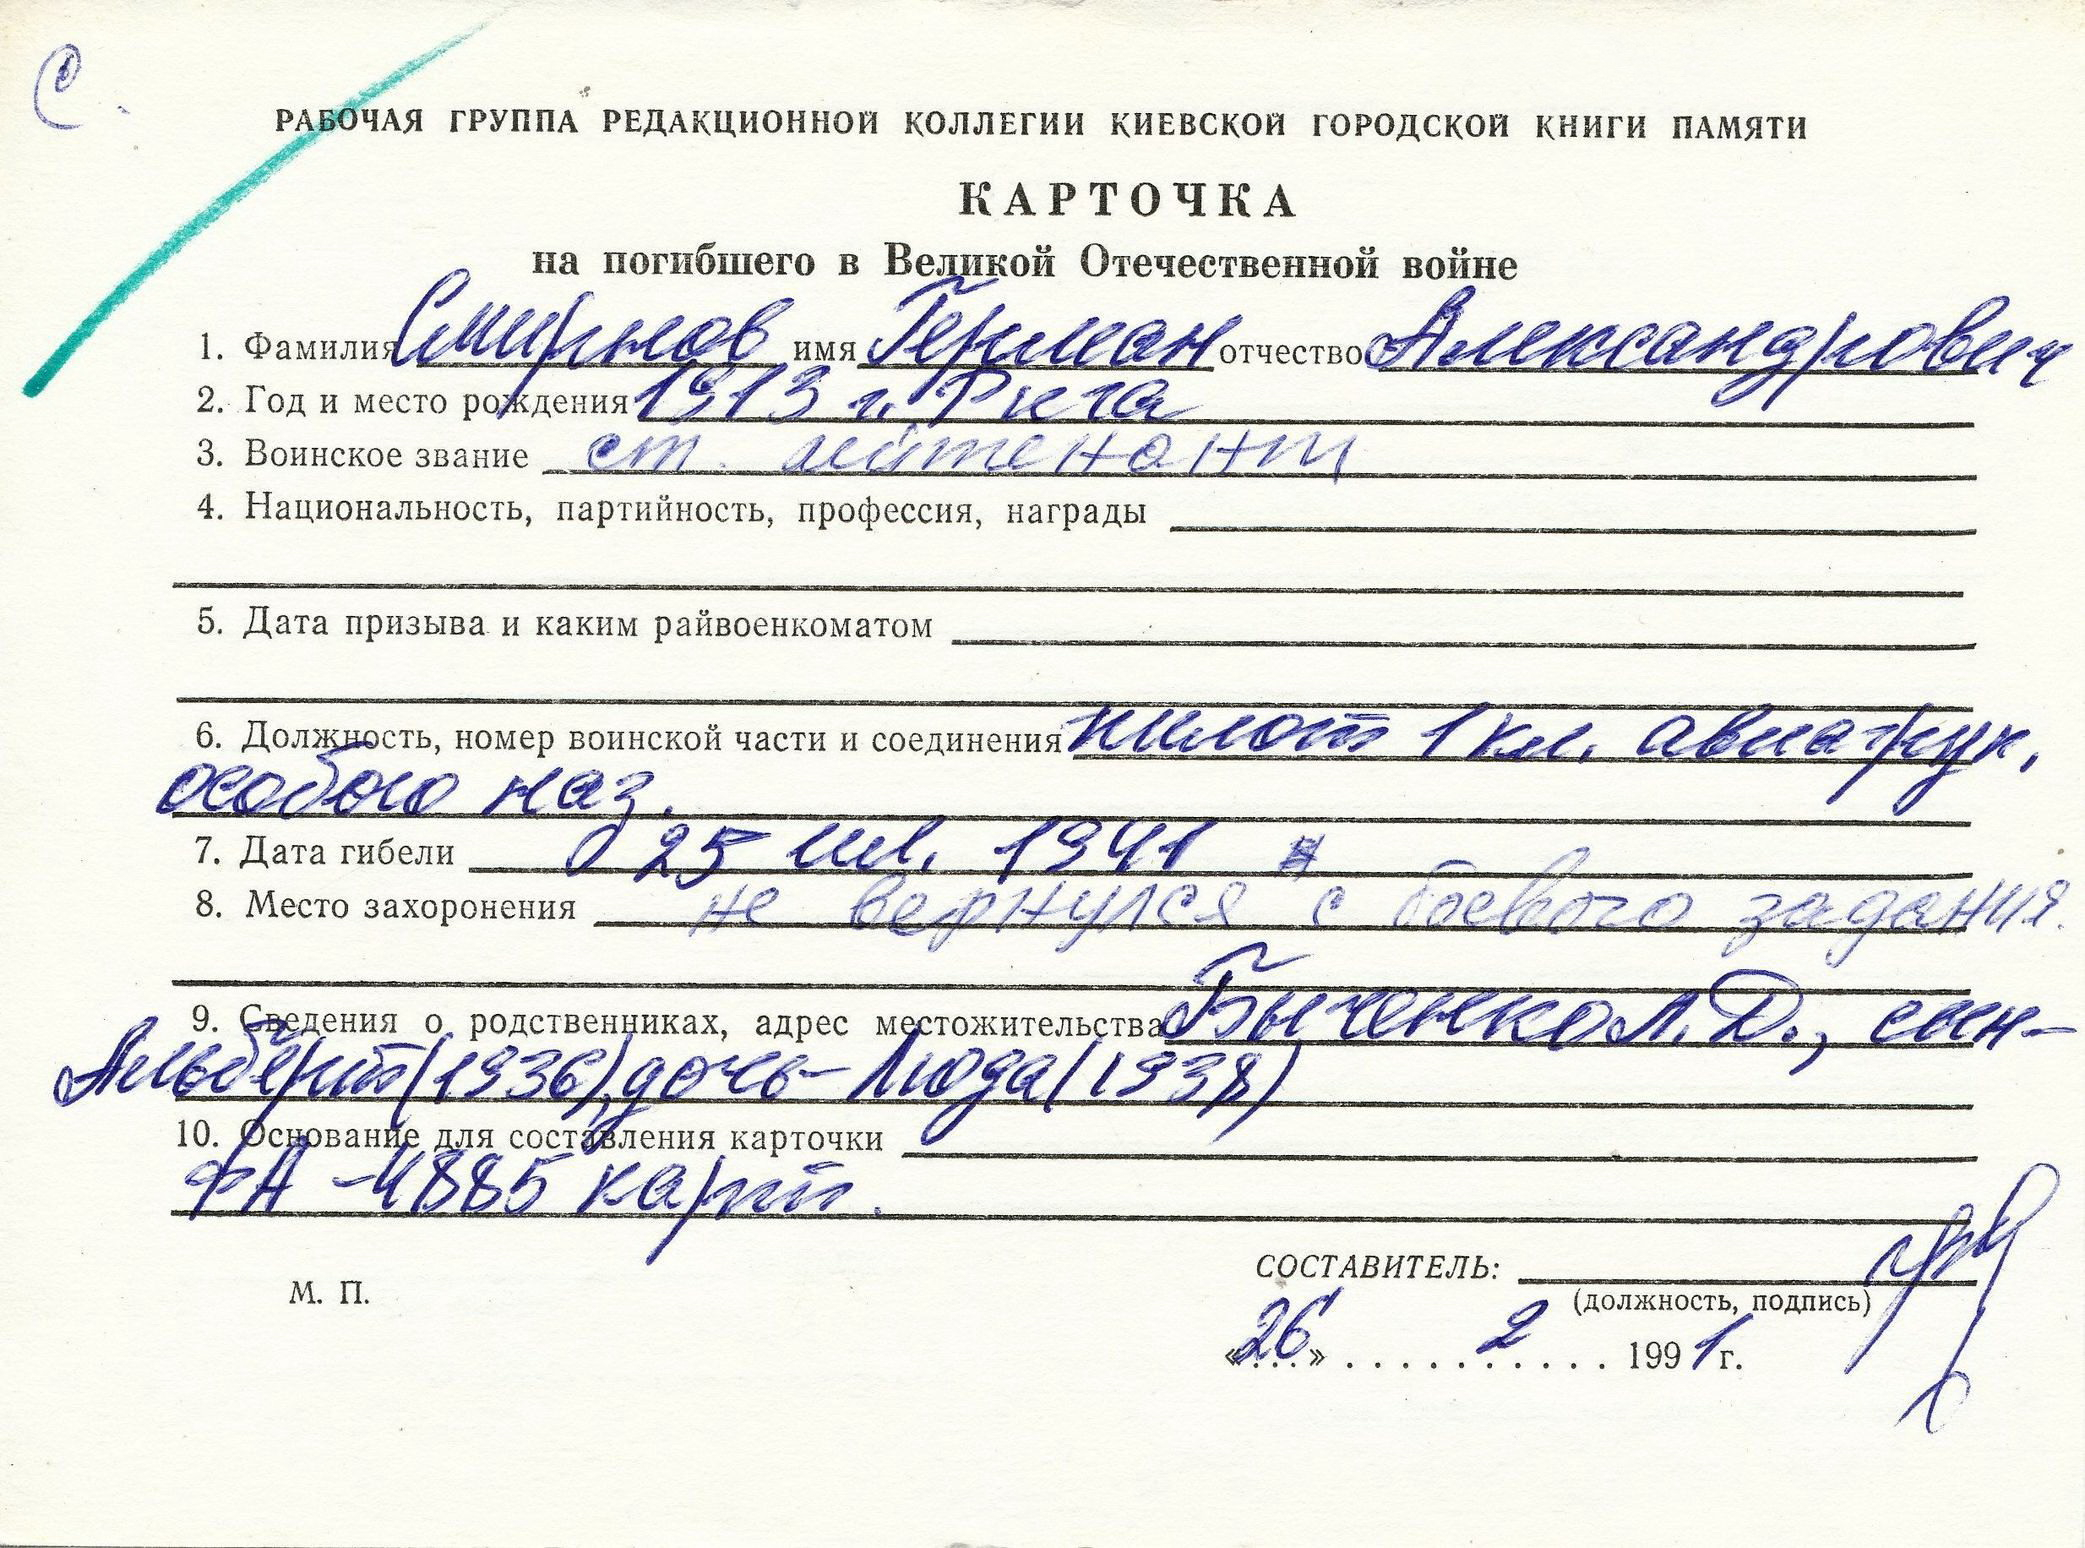 С.
РАБОЧАЯ ГРУППА РЕДАКЦИОННОЙ КОЛЛЕГИИ КИЕВСКОЙ ГОРОДСКОЙ КНИГИ ПАМЯТИ
КАРТОЧКА
на погибшего в Великой Отечественной войне
1. Фамилия Смирнов имя Герман отчество Александрович
2. Год и место рождения 1913 г. Рига
3. Воинское звание ст. лейтенант
4. Национальность, партийность, профессия, награды
5. Дата призыва и каким райвоенкоматом
6. Должность, номер воинской части и соединения пилот 1 кл. авиагруп.
особого наз.
7. Дата гибели 25 июл. 1941
8. Место захоронения не вернулся с боевого задания.
9. Сведения о родственниках, адрес местожительства Быченко Л.Д., сын-
Альберт (1936), дочь - Люда (1938)
10. Основание для составления карточки
ФА - 4885 карт.
М. П.
СОСТАВИТЕЛЬ:
(должность, подпись)
«26» 2 1991 г.